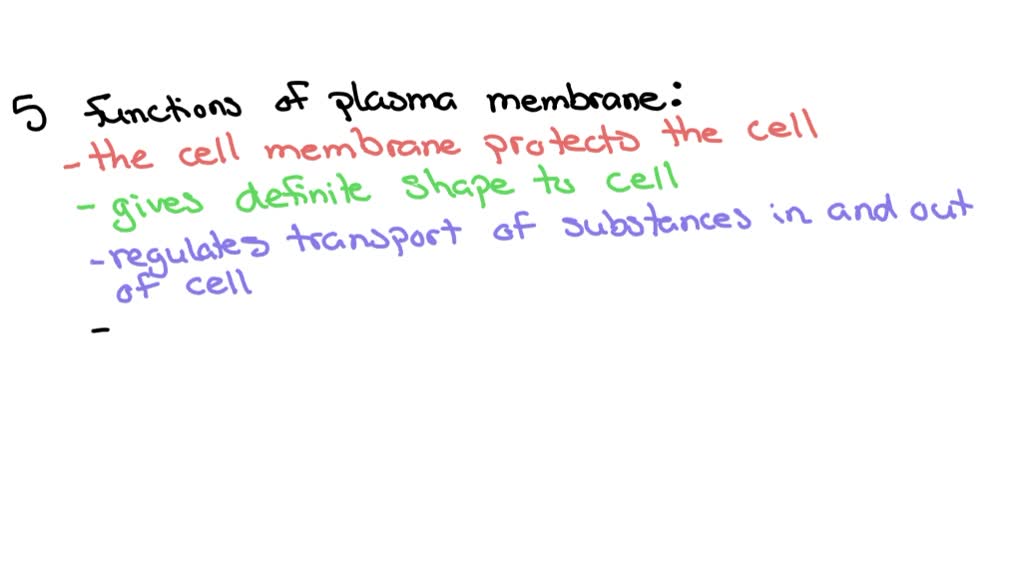 5 functions of plasma membrane:
- the cell membrane protects the cell
- gives definite shape to cell
- regulates transport of substances in and out
of cell
-